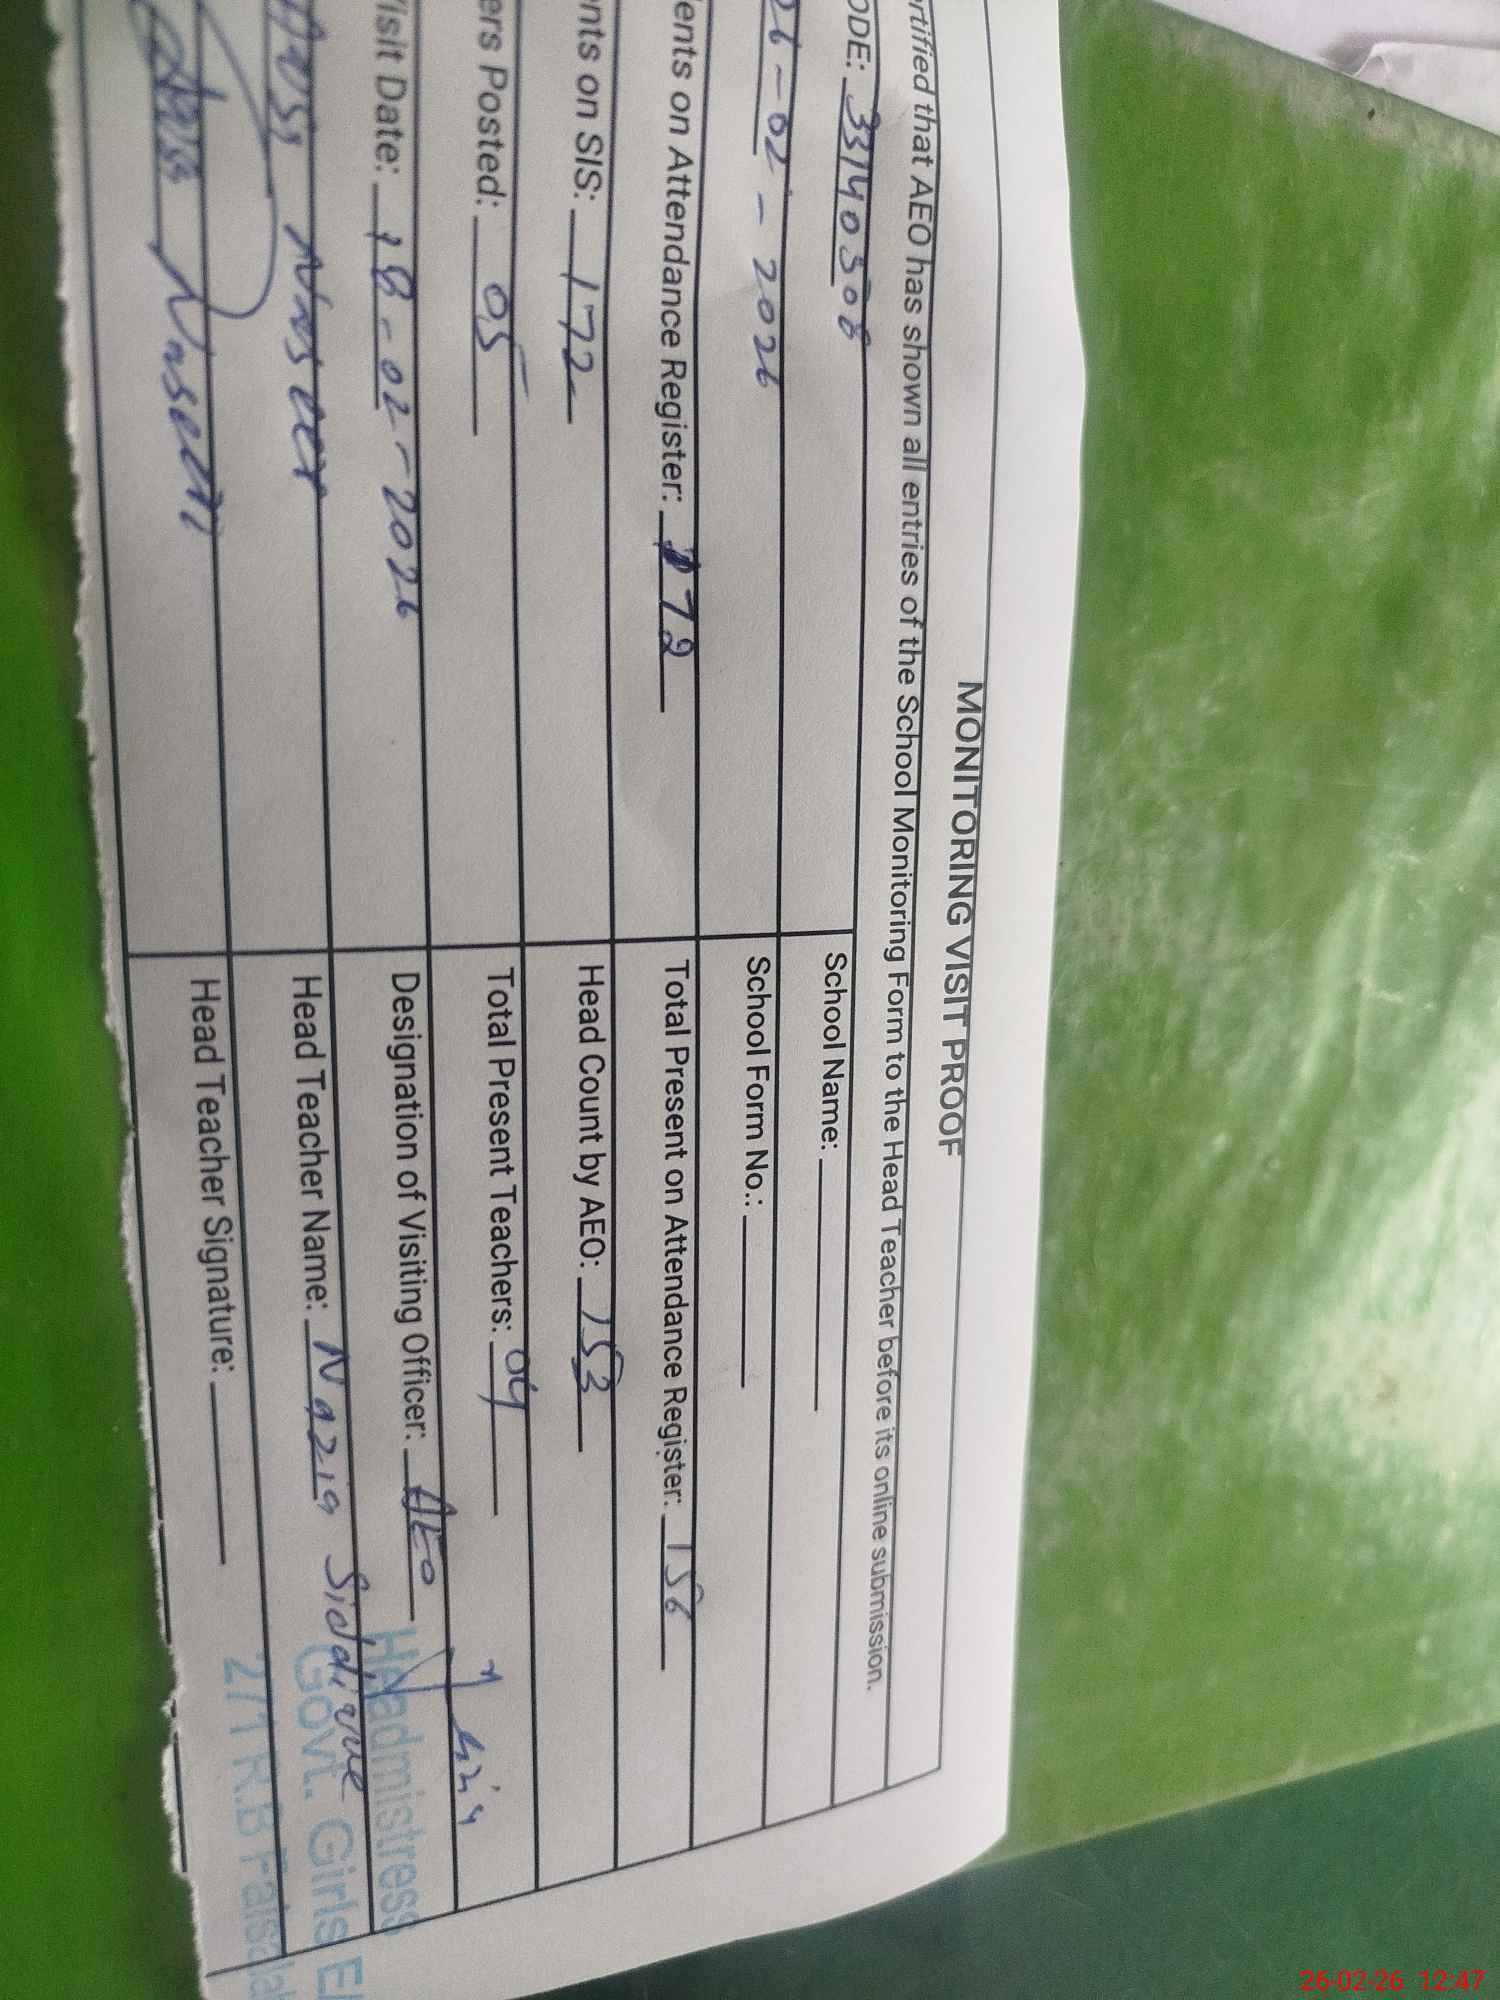 MONITORING VISIT PROOF
rtified that AEO has shown all entries of the School Monitoring Form to the Head Teacher before its online submission.
ODE: 33140508
School Name:
26-02-2026
School Form No.:
ents on Attendance Register: 172
Total Present on Attendance Register: 156
nts on SIS: 172
Head Count by AEO: 153
ers Posted: 05
Total Present Teachers: 04
isit Date: 18-02-2026
Designation of Visiting Officer: AEO
Head Teacher Name: Nazia Siddique
Head Teacher Signature:
Headmistress
Govt. Girls El
2/1 R.B Faisalab
26-02-26 12:47